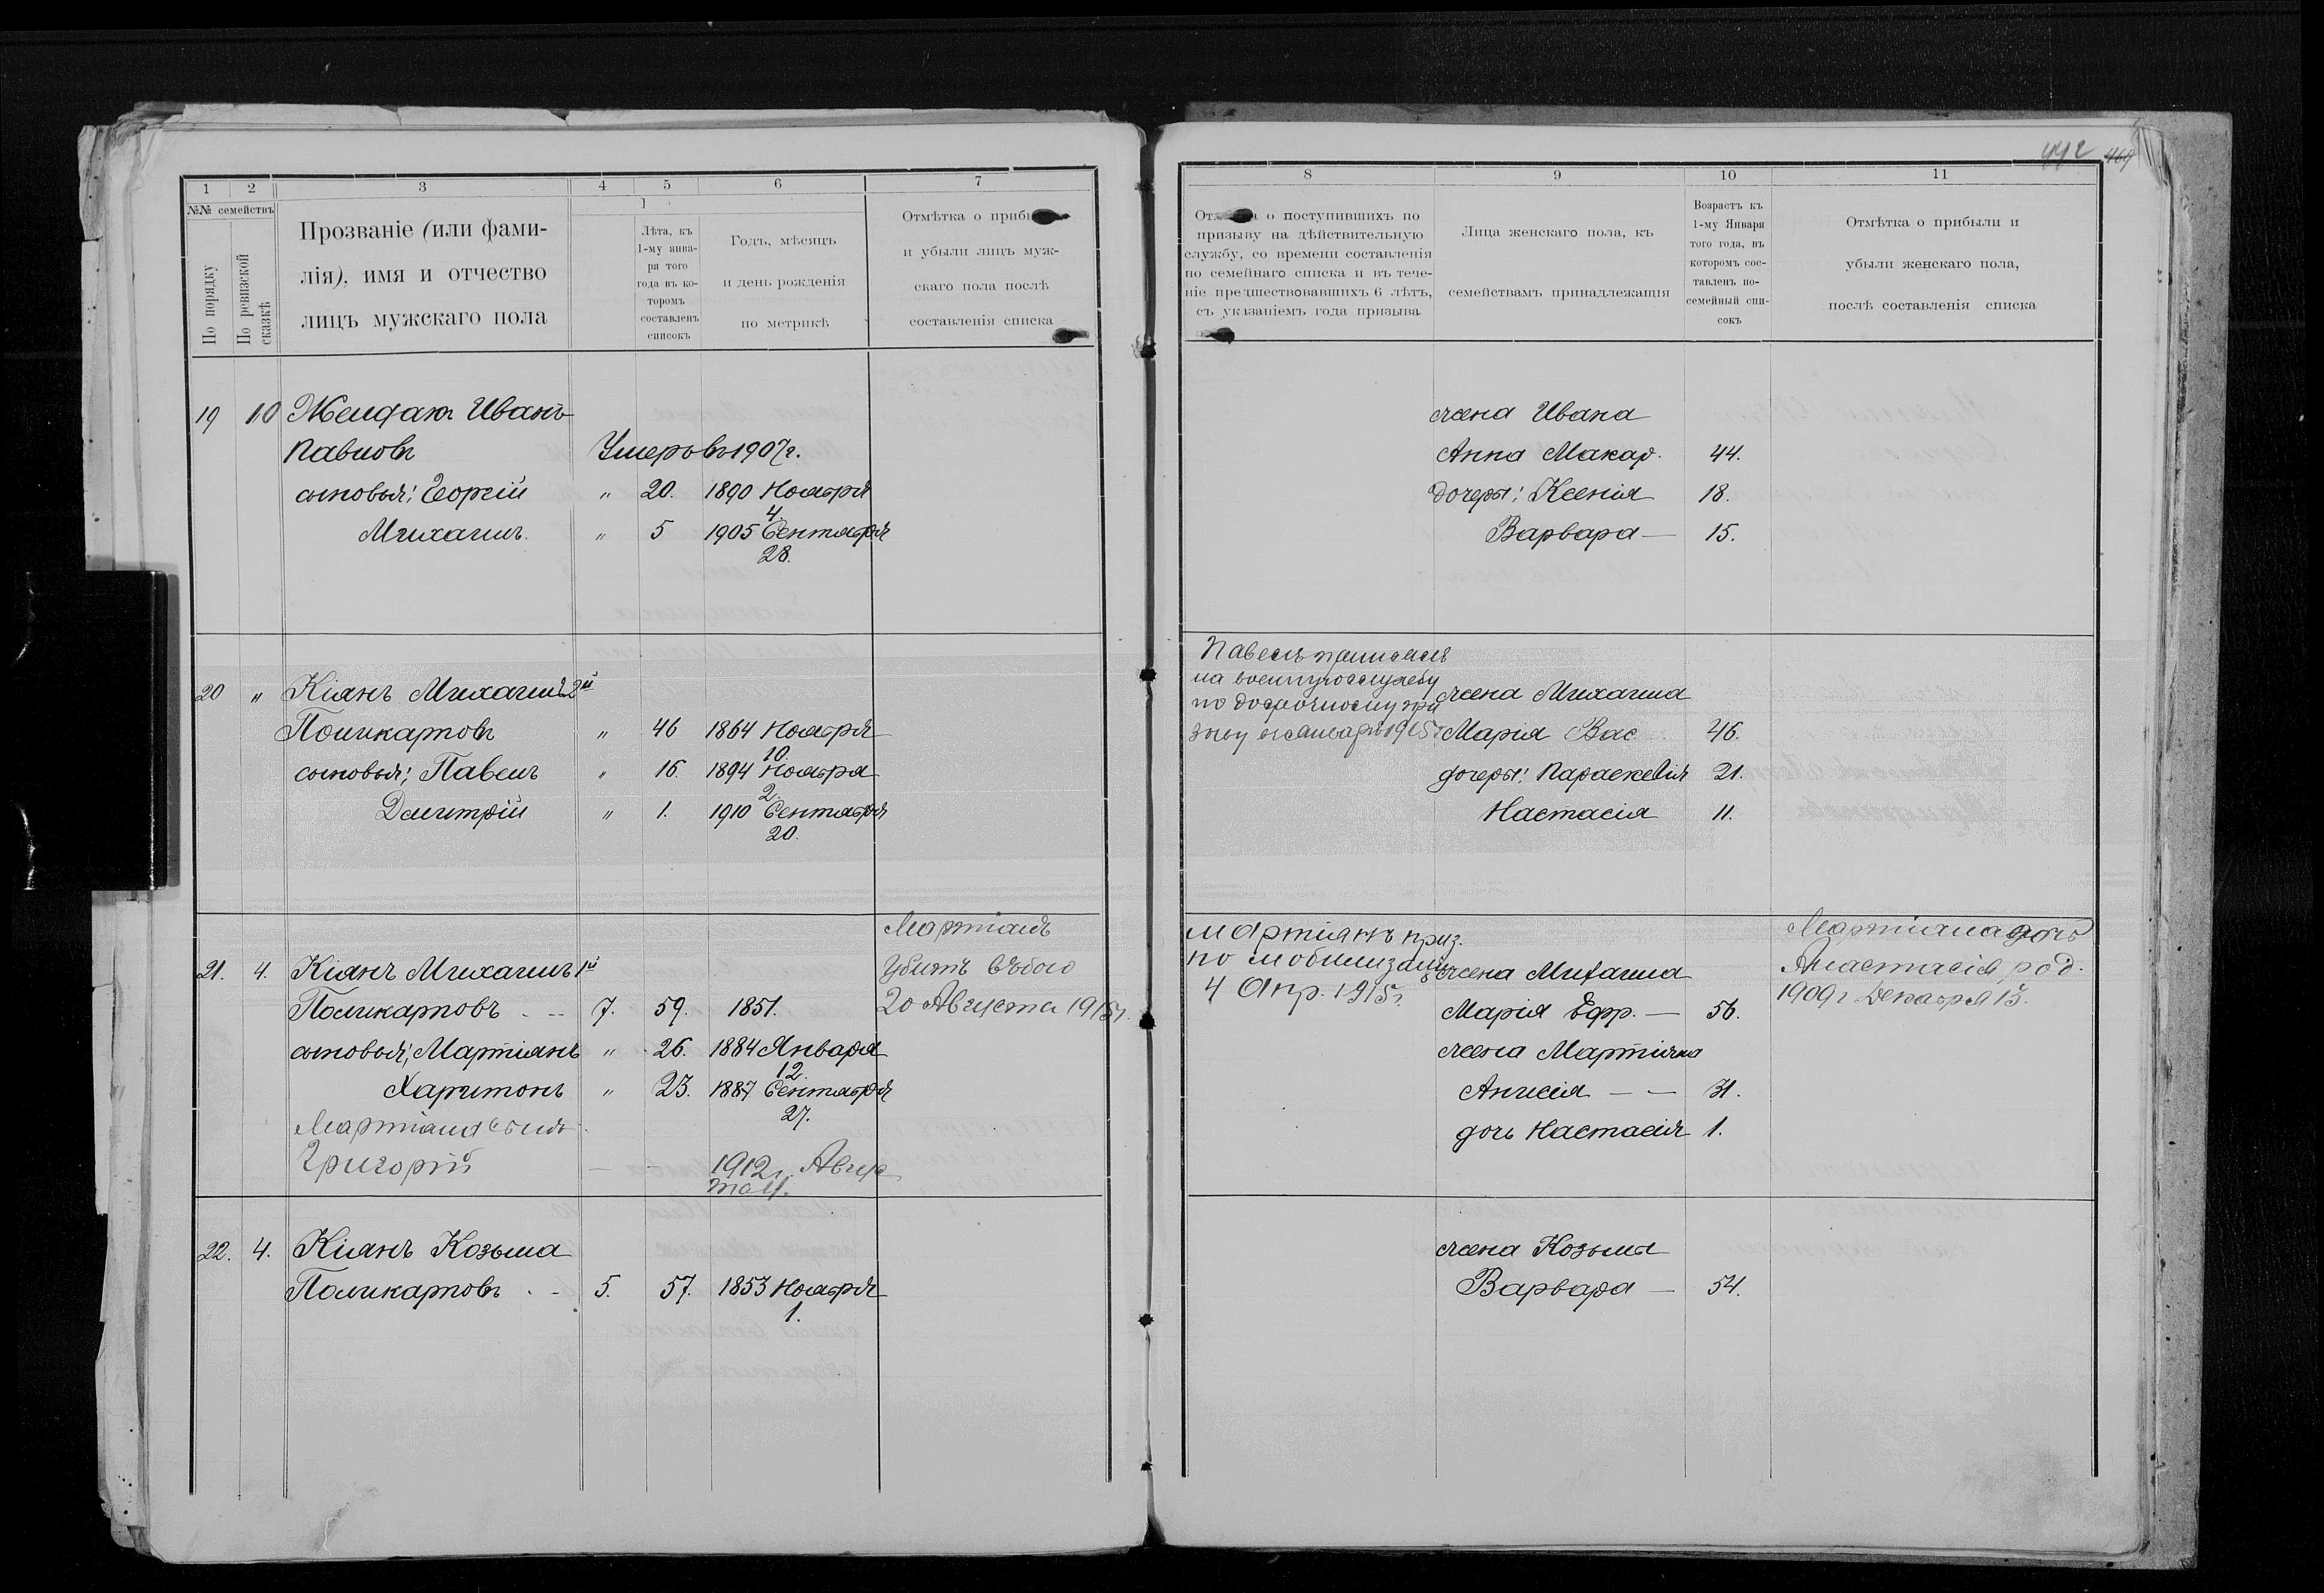 442 469
1 2 3 4 5 6 7
№№ семействъ
По порядку
По ревизской сказкѣ
Прозваніе (или фами-
лія), имя и отчество
лицъ мужскаго пола
1
Лѣта, къ
1-му янва-
ря того
года въ ко-
торомъ
составленъ
списокъ
Годъ, мѣсяцъ
и день рожденія
по метрикѣ
Отмѣтка о
и убыли лицъ муж-
скаго пола послѣ
составленія списка
19 10 Иванъ
Павловъ Умеръ въ 1907 г.
сыновья: Георгій " 20. 1890 Ноября
4.
Михаилъ. " 5 1905 Сентября
28.
20 " Кіянъ Михаилъ 2й
Поликарповъ " 46 1864 Ноября
10.
сыновья; Павелъ " 16. 1894 Ноября
2.
Дмитрій " 1. 1910 Сентября
20.
Мартіанъ
21. 4. Кіянъ Михаилъ 1й Убитъ въ бою
Поликарповъ 7. 59. 1851. 20 Августа 1915 г.
сыновья; Мартіянъ " 26. 1884 Января
12.
Харитонъ " 23. 1887 Сентября
27.
Мартіана сынъ
Григорій — — 1912 г. Авгус
та
22. 4. Кіянъ Козьма
Поликарповъ 5. 57. 1853 Ноября
1.
8 9 10 11
о поступившихъ по
призыву на дѣйствительную
службу, со времени составленія
по семейнаго списка и въ тече-
ніе предшествовавшихъ 6 лѣтъ,
съ указаніемъ года призыва
Лица женскаго пола, къ
семействамъ принадлежащія
Возрастъ къ
1-му Января
того года, въ
которомъ сос-
тавленъ по-
семейный спи-
сокъ
Отмѣтка о прибыли и
убыли женскаго пола,
послѣ составленія списка
жена Ивана
Анна Макар. 44.
дочери: Ксенія 18.
Варвара — 15.
Павелъ принятъ
на военную службу
по досрочному при
зыву 1915 г
жена Михаила
Марія Вас 46.
дочери: Параскевія 21.
Настасія 11.
Мартіянъ приз.
по мобилизаціи
4 Апр. 1915 г.
жена Михаила
Марія Ефр. — 56.
жена Мартіяна
Анисія — — 31.
дочь Настасія 1.
Мартіана дочь
Анастасія род.
1909 г Декабря 13.
жена Козьмы
Варвара — 54.